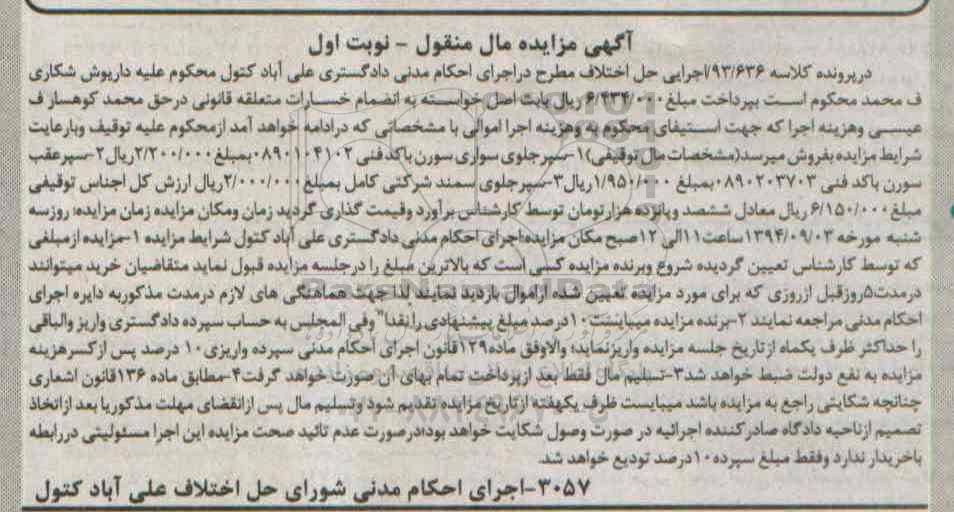 آگهی مزایده مال منقول - نوبت اول
درپرونده کلاسه ۹۳/۶۳۶/اجرایی حل اختلاف مطرح دراجرای احکام مدنی دادگستری علی آباد کتول محکوم علیه داریوش شکاری
ف محمد محکوم است بپرداخت مبلغ ۶/۴۳۴/۰۰۰ ریال بابت اصل خواسته به انضمام خسارات متعلقه قانونی درحق محمد کوهساز ف
عیسی وهزینه اجرا که جهت استیفای محکوم به وهزینه اجرا اموالی با مشخصاتی که درادامه خواهد آمد ازمحکوم علیه توقیف وبارعایت
شرایط مزایده بفروش میرسد(مشخصات مال توقیفی)۱-سپرجلوی سواری سورن باکدفنی ۰۸۹۰۱۰۴۱۰۲بمبلغ۲/۲۰۰/۰۰۰ریال۲-سپرعقب
سورن باکد فنی ۰۸۹۰۲۰۳۷۰۳بمبلغ ۱/۹۵۰/۰۰۰ریال۳-سپرجلوی سمند شرکتی کامل بمبلغ۲/۰۰۰/۰۰۰ریال ارزش کل اجناس توقیفی
مبلغ۶/۱۵۰/۰۰۰ ریال معادل ششصد وپانزده هزارتومان توسط کارشناس برآورد وقیمت گذاری گردید زمان ومکان مزایده زمان مزایده: روزسه
شنبه مورخه ۱۳۹۴/۰۹/۰۳ساعت۱۱الی ۱۲صبح مکان مزایده:اجرای احکام مدنی دادگستری علی آباد کتول شرایط مزایده ۱-مزایده ازمبلغی
که توسط کارشناس تعیین گردیده شروع وبرنده مزایده کسی است که بالاترین مبلغ را درجلسه مزایده قبول نماید متقاضیان خرید میتوانند
درمدت۵روزقبل ازروزی که برای مورد مزایده تعیین شده ازاموال بازدید نمایند لذا جهت هماهنگی های لازم درمدت مذکوربه دایره اجرای
احکام مدنی مراجعه نمایند ۲-برنده مزایده میبایست۱۰درصد مبلغ پیشنهادی را نقدا" وفی المجلس به حساب سپرده دادگستری واریز والباقی
را حداکثر ظرف یکماه ازتاریخ جلسه مزایده واریزنماید؛ والاوفق ماده۱۲۹قانون اجرای احکام مدنی سپرده واریزی۱۰ درصد پس ازکسرهزینه
مزایده به نفع دولت ضبط خواهد شد۳-تسلیم مال فقط بعد ازپرداخت تمام بهای آن صورت خواهد گرفت۴-مطابق ماده ۱۳۶قانون اشعاری
چنانچه شکایتی راجع به مزایده باشد میبایست ظرف یکهفته ازتاریخ مزایده تقدیم شود وتسلیم مال پس ازانقضای مهلت مذکوریا بعد ازاتخاذ
تصمیم ازناحیه دادگاه صادرکننده اجرائیه در صورت وصول شکایت خواهد بود؛درصورت عدم تائید صحت مزایده این اجرا مسئولیتی دررابطه
باخریدار ندارد وفقط مبلغ سپرده۱۰درصد تودیع خواهد شد.
۳۰۵۷-اجرای احکام مدنی شورای حل اختلاف علی آباد کتول
ParsNamadData